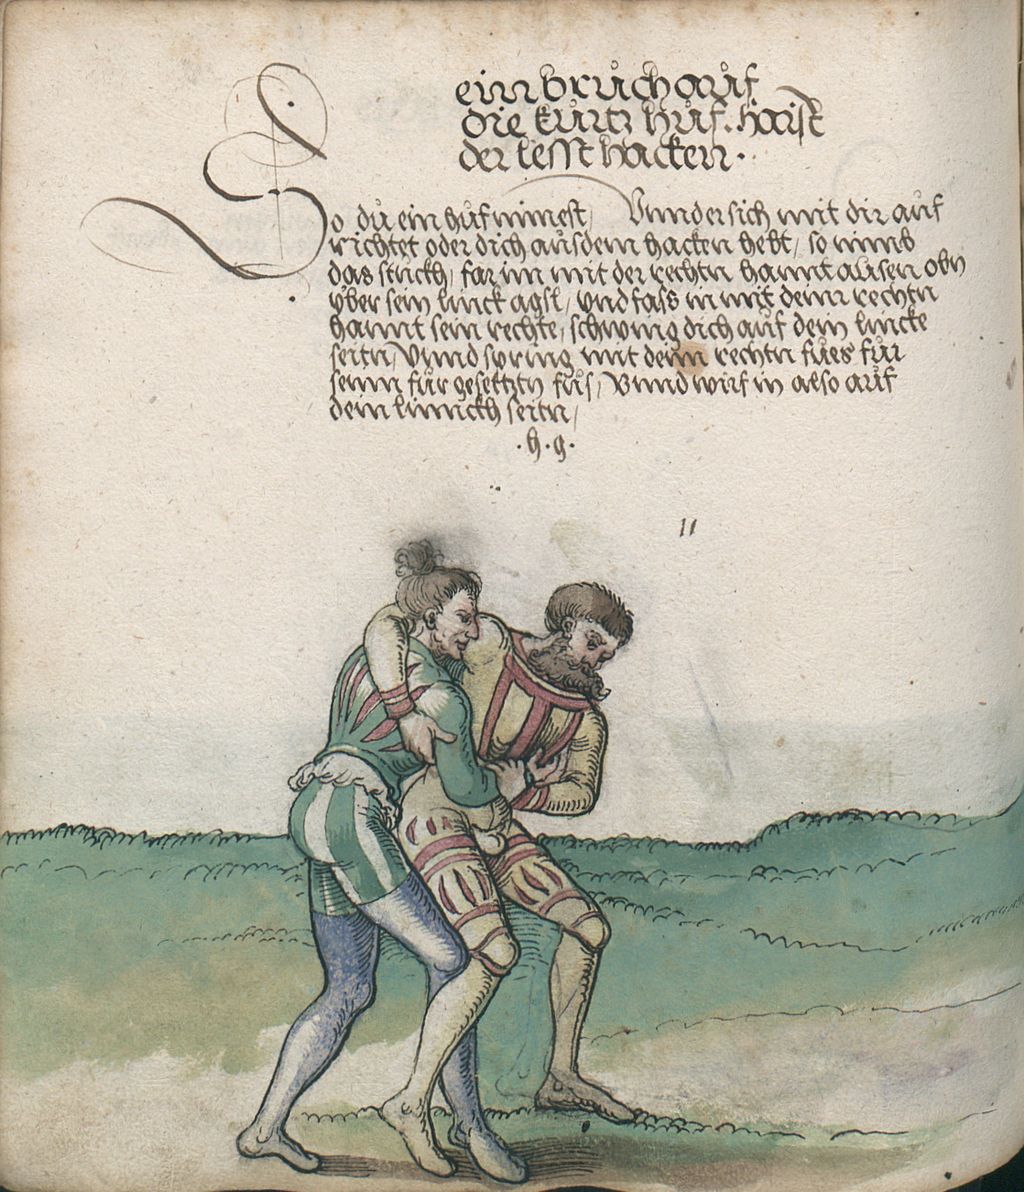 ein bruch auf
die kurtz huf. haist
der lesst hacken.
So du ein huf nimest, Vnnd er sich mit dir auf
richtet oder dich aus dem hacken hebt, so nimb
das stuckh, far im mit der rechtn hannt ausen obn
yber sein linck agsl, vnd fass in mit deinr rechtn
hannt sein rechte, schwing dich auf dein lincke
seitn, Vnnd spring mit dem rechtn fues fur
seinn fur gesetztn fus, Vnnd wirf in also auf
dein linnckh seitn,
.h.g.
11